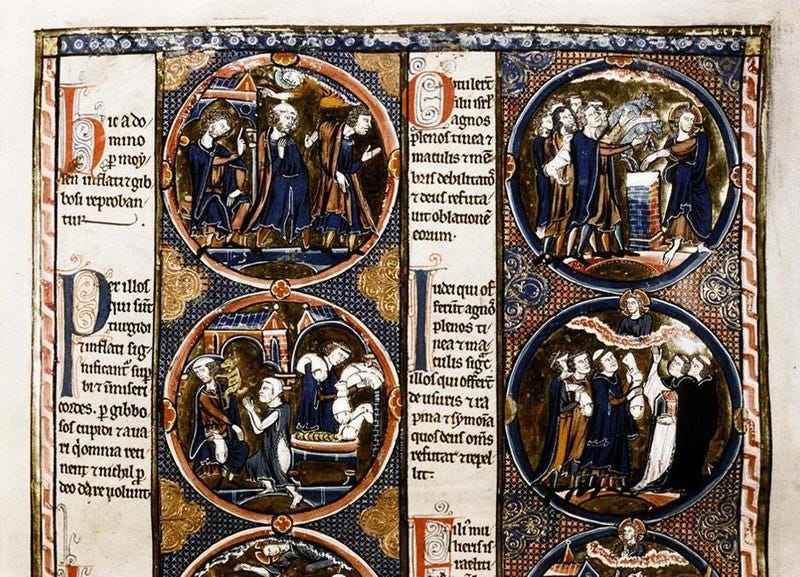 Hic a do-
mino
p moy-
sen inflati & gib
bosi reproban
tur
Per illos
qui sunt
turgidi
& inflati sig
nificant sup
bi & inmiseri
cordes. p gibbo
sos cupidi & aua
ri q omnia reti
nent & nichil p
deo dare uolunt
Optulert
filii isrl
agnos
plenos tinea &
maculis & mē
bris debilitatos
& deus refuta
uit oblationē
eorum.
Iudei qui of
ferūt agnos
plenos ti
nea & ma
culis sigt.
illos qui offerūt
de usuris & ra
pina & symonia
quos deus
refutat & repel
lit:
Filius mu
lieris is
raeliti